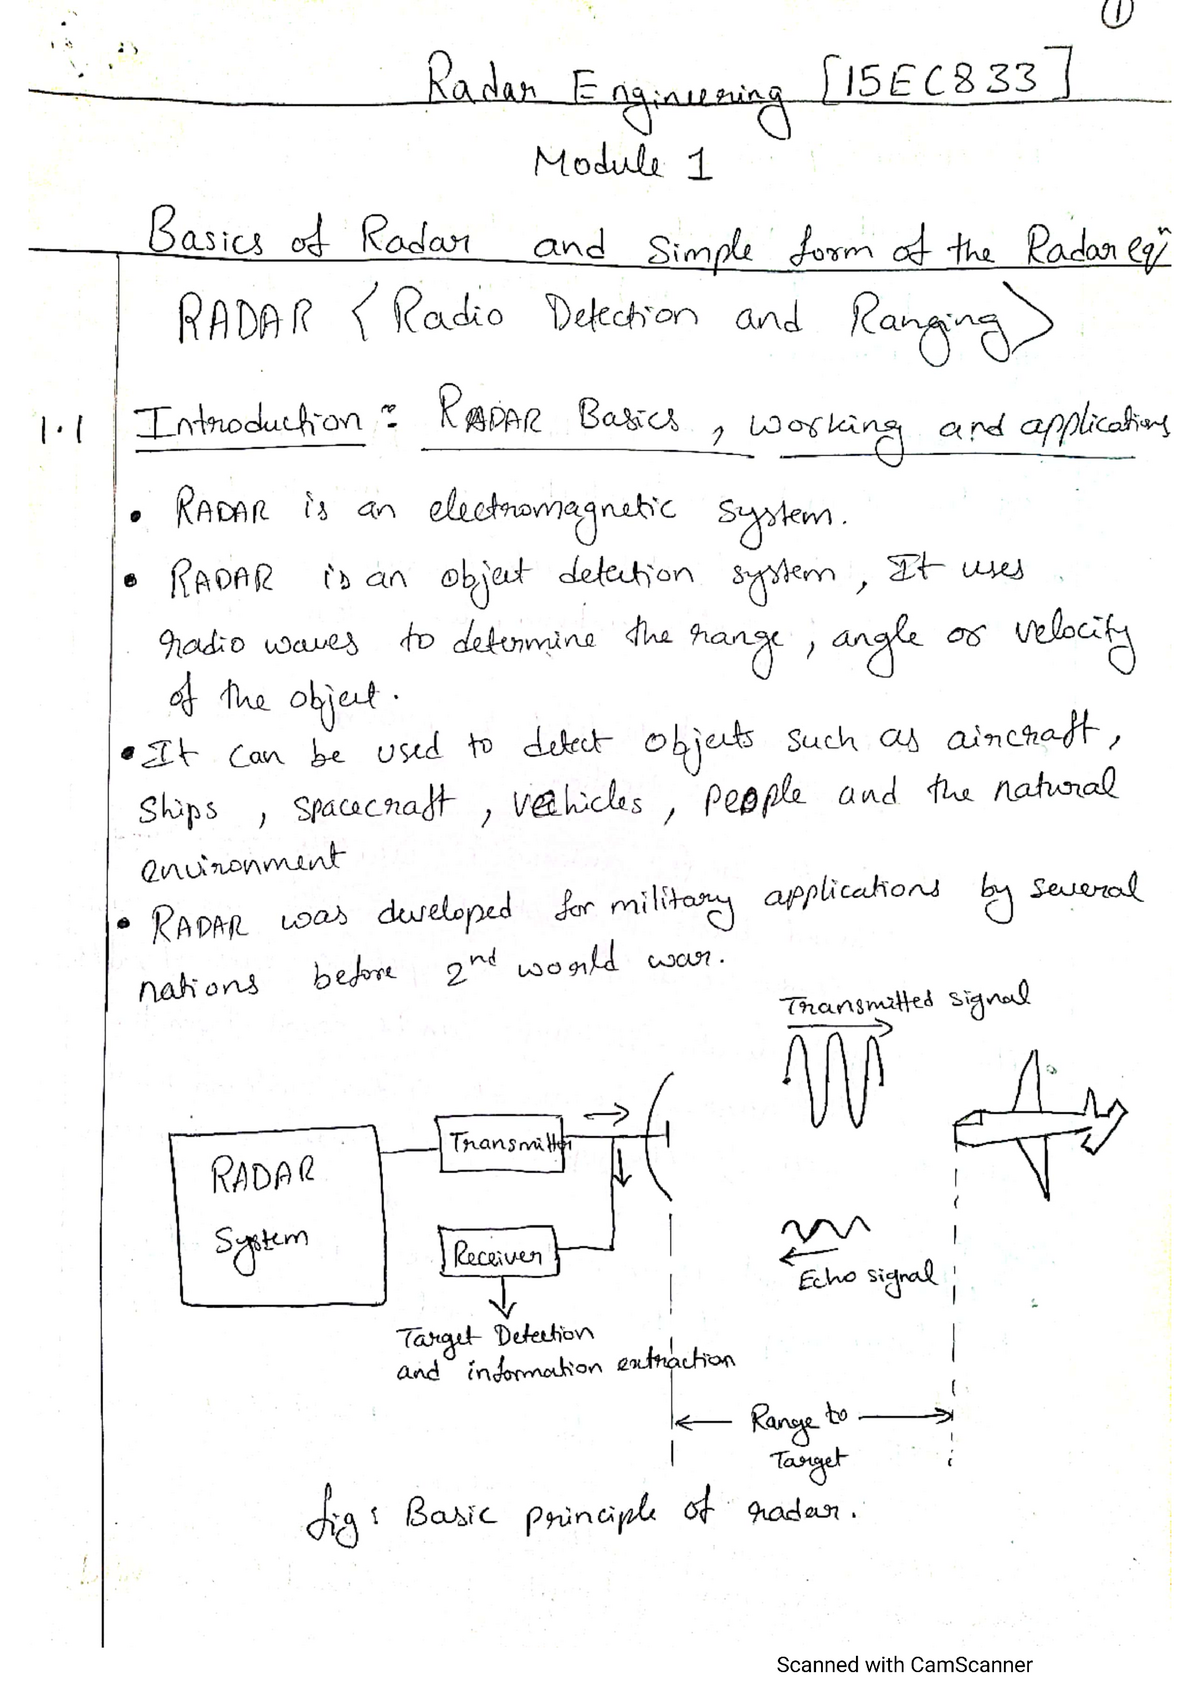 1
Radar Engineering [15EC833]
Module 1
Basics of Radar and Simple form of the Radar eqn
RADAR < Radio Detection and Ranging >
1.1 Introduction : RADAR Basics , working and applications
• RADAR is an electromagnetic system.
• RADAR is an object detection system , It uses
radio waves to determine the range , angle or velocity
of the object .
• It can be used to detect objects such as aircraft ,
Ships , spacecraft , vehicles , people and the natural
environment
• RADAR was developed for military applications by several
nations before 2nd world war .
Transmitted signal
Transmitter
RADAR
System
Receiver
Echo signal
Target Detection
and information extraction
Range to
Target
fig : Basic principle of radar .
Scanned with CamScanner